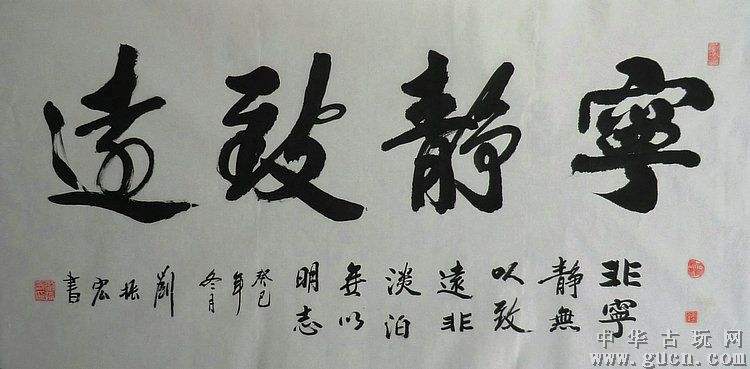 寧靜致遠
非寧
靜無
以致
遠非
淡泊
無以
明志
癸巳
年
冬月
劉
振
宏
書
中华古玩网
www.gucn.com